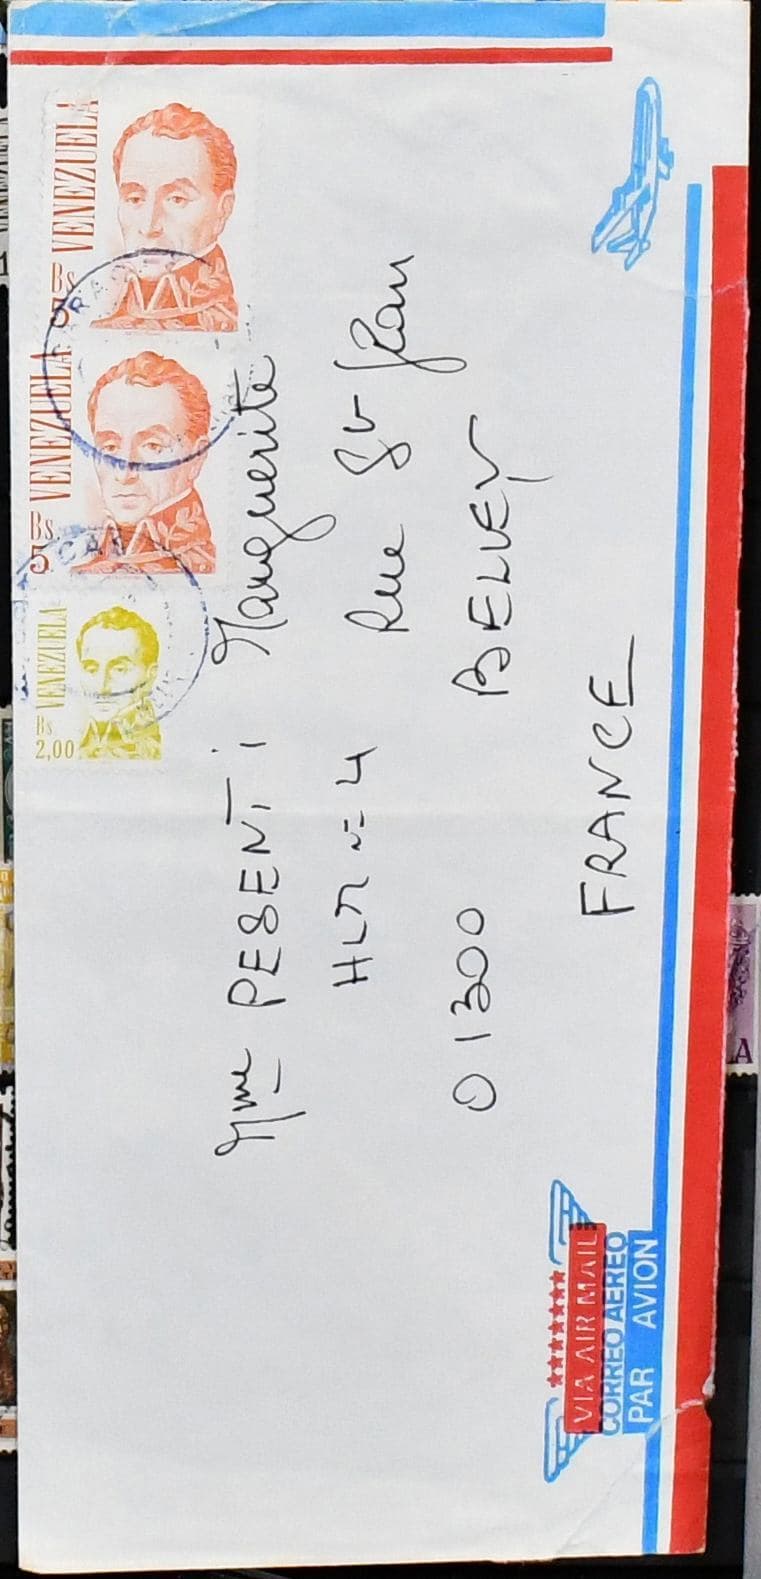 VENEZUELA
Bs 5
VENEZUELA
Bs 5
VENEZUELA
Bs 2,00
Mme PESENTI Marguerite
HLM n= 4 Rue St Jean
01300 BELLEY
FRANCE
VIA AIR MAIL
CORREO AEREO
PAR AVION